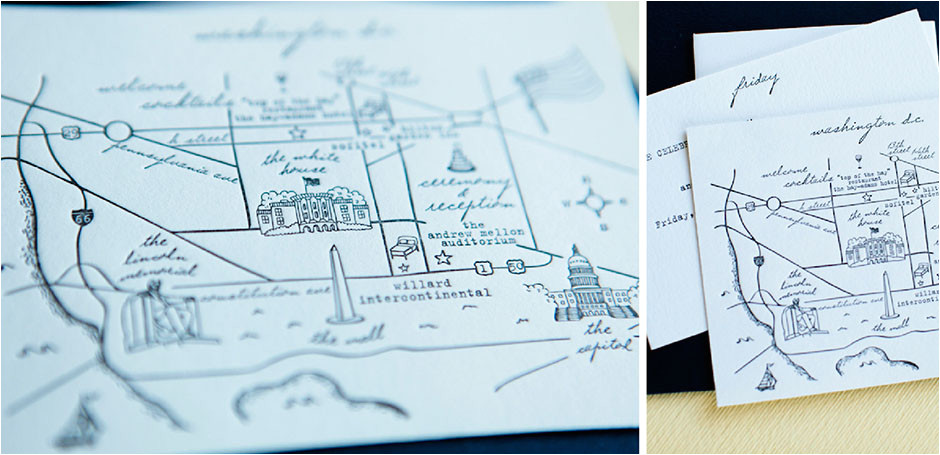 washington d.c.
welcome
cocktails
"top of the bay"
restaurant
the hay-adams hotel
29
k street
sofitel
pennsylvania ave
the white
house
ceremony
&
reception
the
andrew mellon
auditorium
66
N
W
E
S
1
50
the
lincoln
memorial
constitution ave
willard
intercontinental
the mall
the
capitol
friday
THE CELEB
an
Friday,
washington d.c.
13th
street
welcome
cocktails
"top of the bay"
restaurant
the hay-adams hotel
k street
sofitel
pennsylvania ave
the white
house
66
the
lincoln
memorial
constitution ave
willard
intercont
the mall